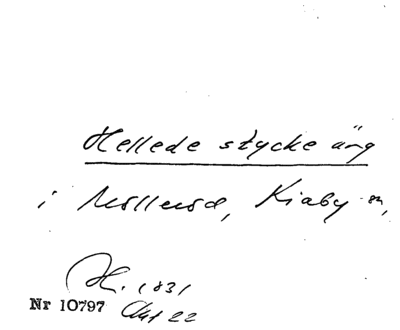 Hellede stycke äng
i Möllerod, Kiaby sn,
H. 1831
Nr 10797 Akt 22